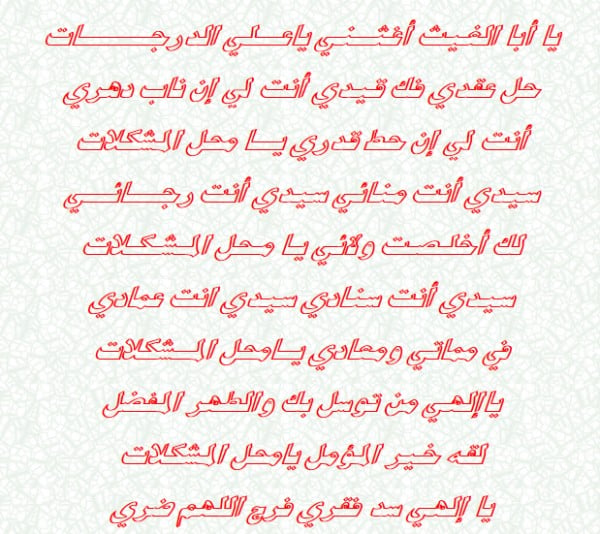 يا أبا الغيث أغثني ياعلي الدرجات
حل عقدي فك قيدي أنت لي إن ناب دهري
أنت لي إن حط قدري يا محل المشكلات
سيدي أنت منائي سيدي أنت رجائي
لك أخلصت ولائي يا محل المشكلات
سيدي أنت سنادي سيدي انت عمادي
في مماتي ومعادي يامحل المشكلات
ياإلهي من توسل بك والطهر المفضل
لقه خير المؤمل يامحل المشكلات
يا إلهي سد فقري فرج اللهم ضري